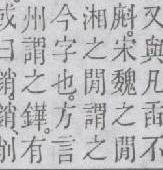 又與凡臿不
宋魏之閒
湘之閒謂之
今字也。方言
州謂之鏵。有
或曰銷。銷削